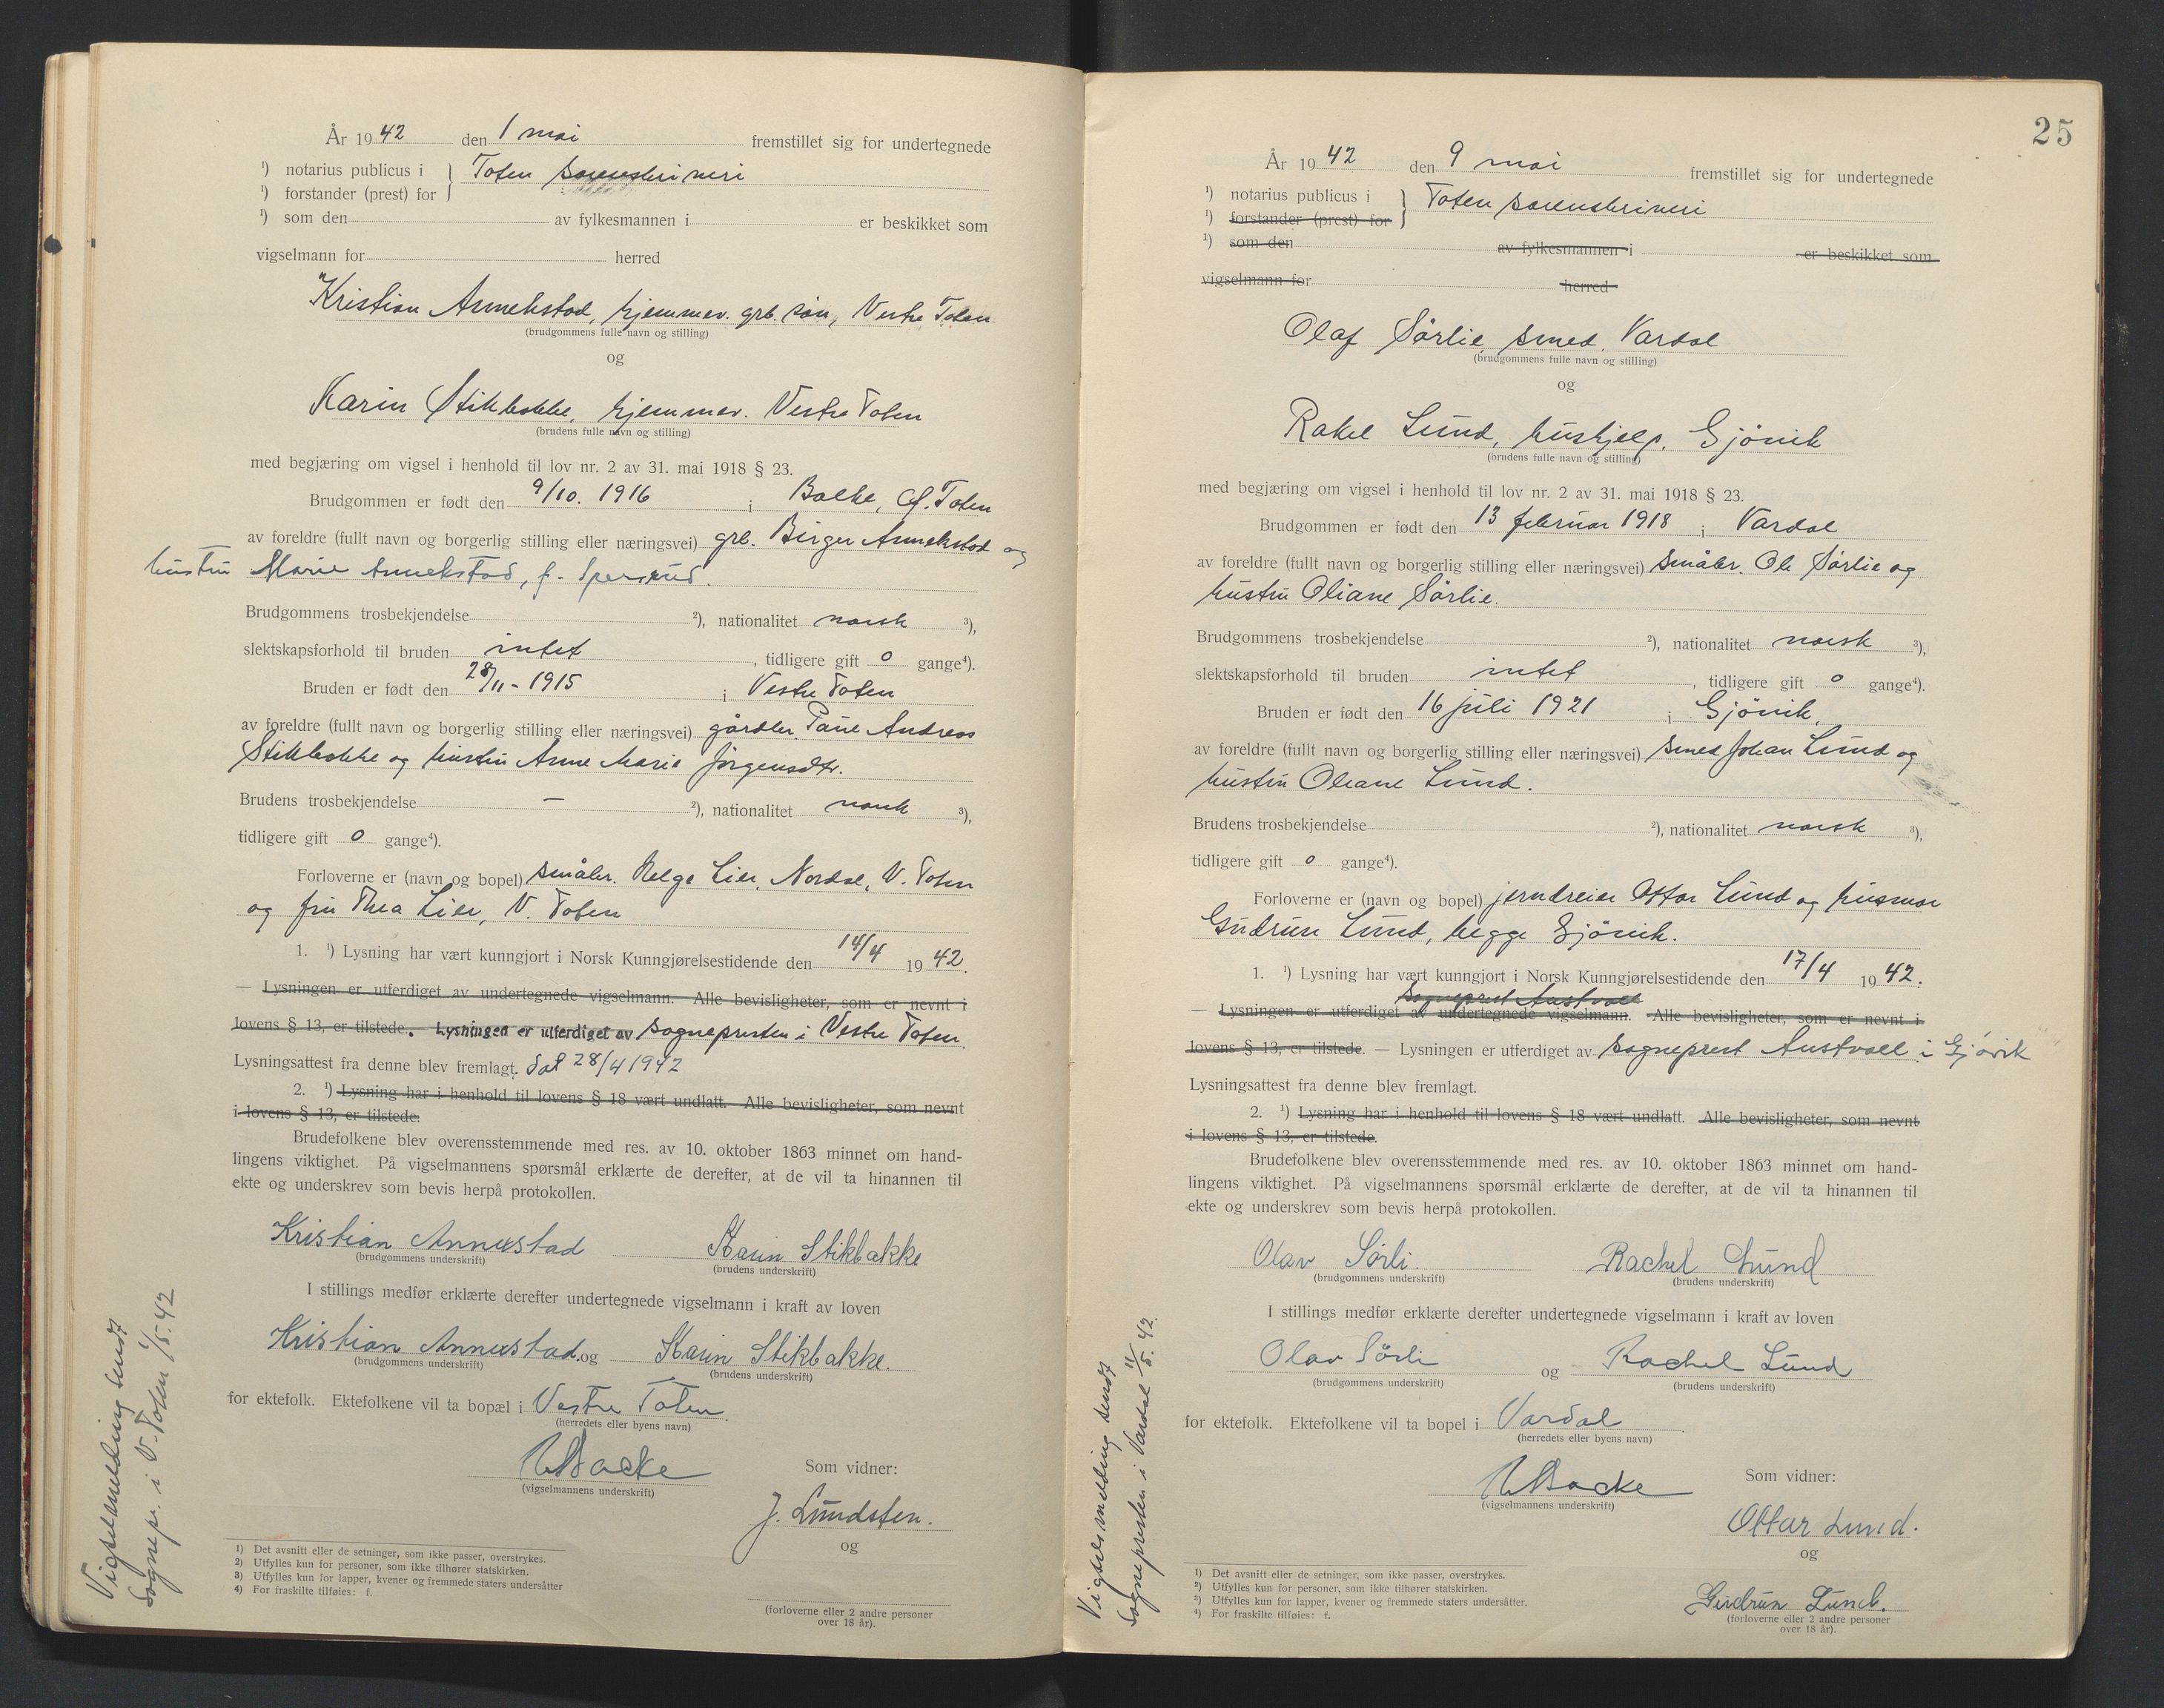 År 1942 den 1 mai fremstillet sig for undertegnede
¹) notarius publicus i } Toten sorenskriveri
¹) forstander (prest) for
¹) som den av fylkesmannen i er beskikket som
vigselmann for herred
Kristian Annekstad, hjemmev. grb. søn, Vestre Toten
(brudgommens fulle navn og stilling)
og
Karin Stikbakke, hjemmev. Vestre Toten
(brudens fulle navn og stilling)
med begjæring om vigsel i henhold til lov nr. 2 av 31. mai 1918 § 23.
Brudgommen er født den 9/10. 1916 i Balke, Ø. Toten
av foreldre (fullt navn og borgerlig stilling eller næringsvei) grb. Birger Annekstad og
hustru Marie Annekstad, f. Spersrud.
Brudgommens trosbekjendelse ²), nationalitet norsk ³),
slektskapsforhold til bruden intet, tidligere gift 0 gange⁴).
Bruden er født den 28/11 - 1915 i Vestre Toten
av foreldre (fullt navn og borgerlig stilling eller næringsvei) gårdbr. Paul Andreas
Stikbakke og hustru Anne Marie Jørgensdtr.
Brudens trosbekjendelse – ²), nationalitet norsk ³),
tidligere gift 0 gange⁴).
Forloverne er (navn og bopel) småbr. Helge Lier, Nordal, V. Toten
og fru Thea Lier, V. Toten
1. ¹) Lysning har vært kunngjort i Norsk Kunngjørelsestidende den 14/4 1942.
— Lysningen er utferdiget av undertegnede vigselmann. Alle bevisligheter, som er nevnt i
lovens § 13, er tilstede. Lysningen er utferdiget av sognepresten i Vestre Toten.
Lysningsattest fra denne blev fremlagt. dat 28/4 1942
2. ¹) Lysning har i henhold til lovens § 18 vært undlatt. Alle bevisligheter, som nevnt
i lovens § 13, er tilstede.
Brudefolkene blev overensstemmende med res. av 10. oktober 1863 minnet om hand-
lingens viktighet. På vigselmannens spørsmål erklærte de derefter, at de vil ta hinannen til
ekte og underskrev som bevis herpå protokollen.
Kristian Annekstad Karin Stikbakke
(brudgommens underskrift) (brudens underskrift)
I stillings medfør erklærte derefter undertegnede vigselmann i kraft av loven
Kristian Annekstad. og Karin Stikbakke.
(brudgommens underskrift) (brudens underskrift)
for ektefolk. Ektefolkene vil ta bopæl i Vestre Toten.
(herredets eller byens navn)
Backe Som vidner:
(vigselmannens underskrift)
J. Lundsten.
og
(forloverne eller 2 andre personer
over 18 år).
¹) Det avsnitt eller de setninger, som ikke passer, overstrykes.
²) Utfylles kun for personer, som ikke tilhører statskirken.
³) Utfylles kun for lapper, kvener og fremmede staters undersåtter
⁴) For fraskilte tilføies: f.
Vigselsmelding sendt
sognepr. i V. Toten 1/5. 42
25
År 1942 den 9 mai fremstillet sig for undertegnede
¹) notarius publicus i } Toten sorenskriveri
¹) forstander (prest) for
¹) som den av fylkesmannen i er beskikket som
vigselmann for herred
Olaf Sørlie, smed, Vardal
(brudgommens fulle navn og stilling)
og
Rakel Lund, hushjelp. Gjövik
(brudens fulle navn og stilling)
med begjæring om vigsel i henhold til lov nr. 2 av 31. mai 1918 § 23.
Brudgommen er født den 13 februar 1918 i Vardal
av foreldre (fullt navn og borgerlig stilling eller næringsvei) småbr. Ole Sørlie og
hustru Oliane Sørlie.
Brudgommens trosbekjendelse ²), nationalitet norsk ³),
slektskapsforhold til bruden intet, tidligere gift 0 gange⁴).
Bruden er født den 16 juli 1921 i Gjövik,
av foreldre (fullt navn og borgerlig stilling eller næringsvei) smed Johan Lund og
hustru Oleane Lund.
Brudens trosbekjendelse ²), nationalitet norsk ³),
tidligere gift 0 gange⁴).
Forloverne er (navn og bopel) jerndreier Ottar Lund og husmor
Gudrun Lund, begge Gjövik.
1. ¹) Lysning har vært kunngjort i Norsk Kunngjørelsestidende den 17/4 1942.
sogneprest Austvoll
— Lysningen er utferdiget av undertegnede vigselmann. Alle bevisligheter, som er nevnt i
lovens § 13, er tilstede. — Lysningen er utferdiget av sogneprest Austvoll i Gjøvik
Lysningsattest fra denne blev fremlagt.
2. ¹) Lysning har i henhold til lovens § 18 vært undlatt. Alle bevisligheter, som nevnt
i lovens § 13, er tilstede.
Brudefolkene blev overensstemmende med res. av 10. oktober 1863 minnet om hand-
lingens viktighet. På vigselmannens spørsmål erklærte de derefter, at de vil ta hinannen til
ekte og underskrev som bevis herpå protokollen.
Olav Sørli. Rachel Lund
(brudgommens underskrift) (brudens underskrift)
I stillings medfør erklærte derefter undertegnede vigselmann i kraft av loven
Olav Sørli og Rachel Lund
(brudgommens underskrift) (brudens underskrift)
for ektefolk. Ektefolkene vil ta bopel i Vardal.
(herredets eller byens navn)
Backe Som vidner:
(vigselmannens underskrift)
Ottar Lund.
og
Gudrun Lund.
(forloverne eller 2 andre personer
over 18 år).
¹) Det avsnitt eller de setninger, som ikke passer, overstrykes.
²) Utfylles kun for personer, som ikke tilhører statskirken.
³) Utfylles kun for lapper, kvener og fremmede staters undersåtter.
⁴) For fraskilte tilføies: f.
Vigselsmelding sendt
sognepresten i Vardal 11/5. 42.